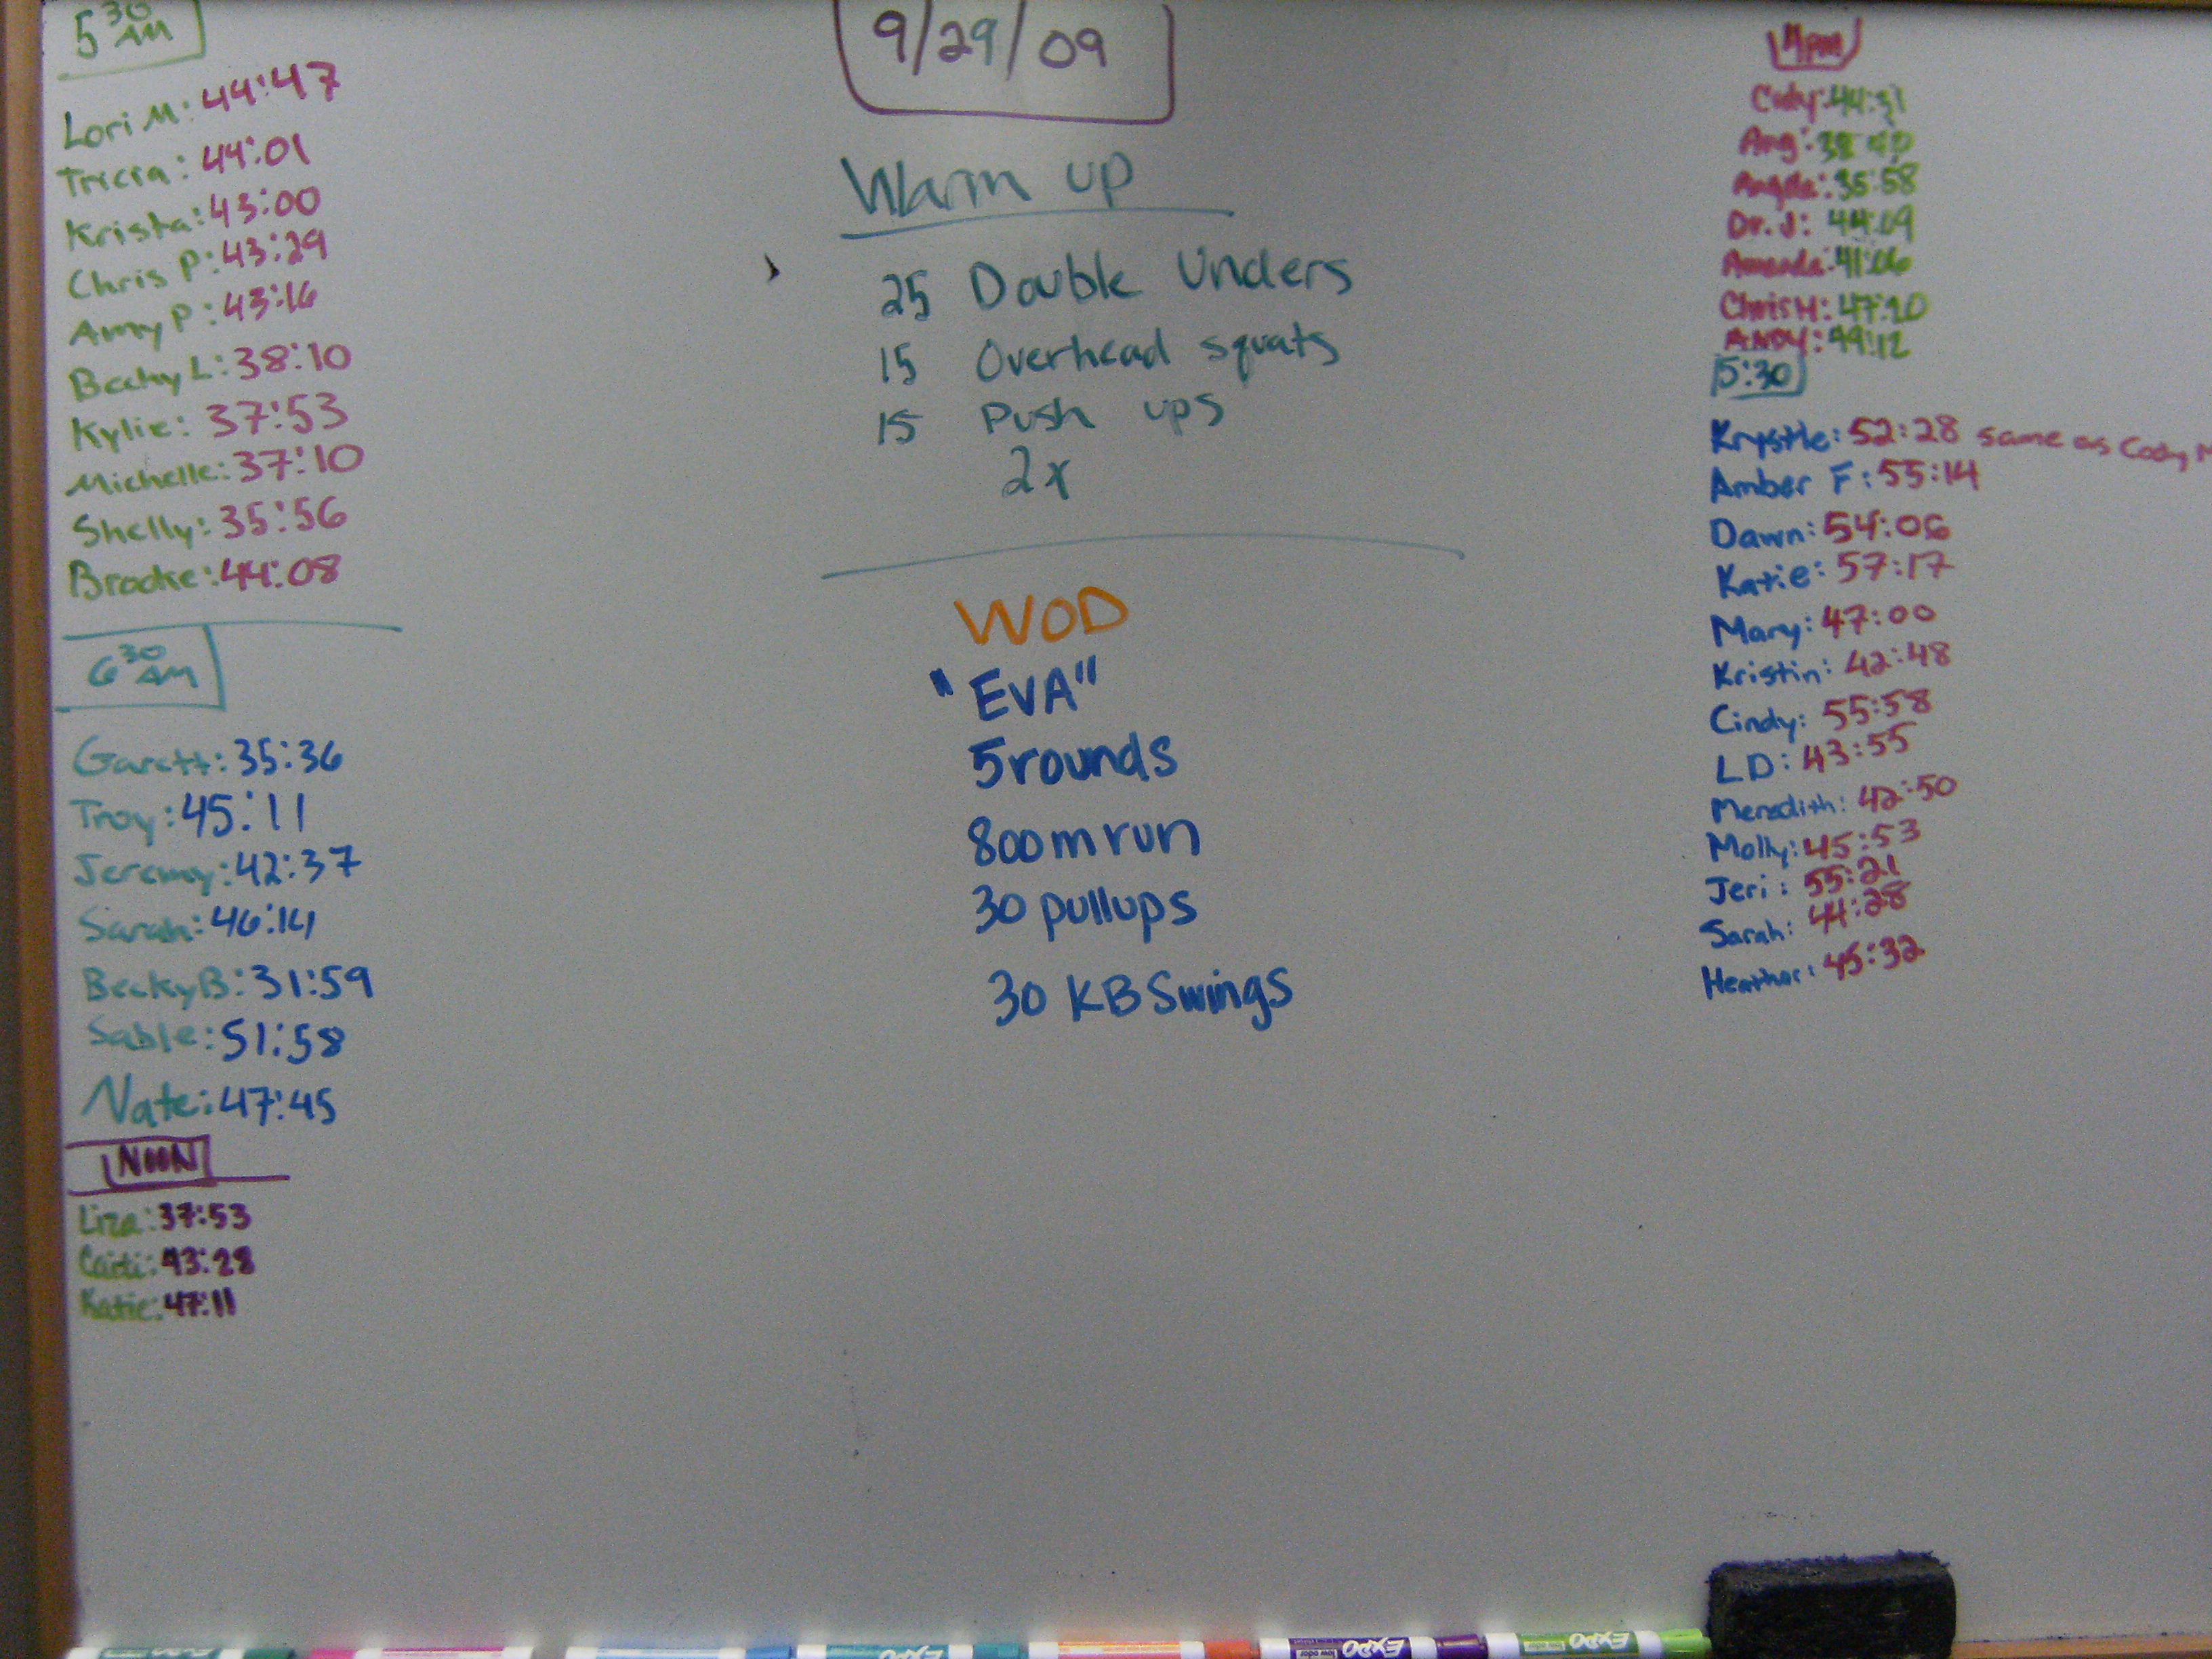 5 30 AM
Lori M: 44:47
Tricia: 44:01
Krista: 43:00
Chris P: 43:29
Amy P: 43:16
Becky L: 38:10
Kylie: 37:53
Michelle: 37:10
Shelly: 35:56
Brooke: 44:08
6 30 AM
Garett: 35:36
Troy: 45:11
Jeremy: 42:37
Sarah: 46:14
Becky B: 31:59
Sable: 51:58
Nate: 47:45
NOON
Liza: 37:53
Caiti: 43:28
Katie: 47:11
9/29/09
Warm up
25 Double Unders
15 Overhead squats
15 Push ups
2x
WOD
"EVA"
5 rounds
800m run
30 pullups
30 KB Swings
4pm
Cody: 44:31
Ang:
Angela: 35:58
Dr. J: 44:09
Amanda: 41:06
Chris H: 47:20
ANDY: 49:12
5:30
Krystle: 52:28 same as Cody M
Amber F: 55:14
Dawn: 54:06
Katie: 57:17
Mary: 47:00
Kristin: 42:48
Cindy: 55:58
LD: 43:55
Meredith: 42:50
Molly: 45:53
Jeri: 55:21
Sarah: 44:28
Heather: 45:32
EXPO
EXPO
EXPO
low odor
EXPO
low odor